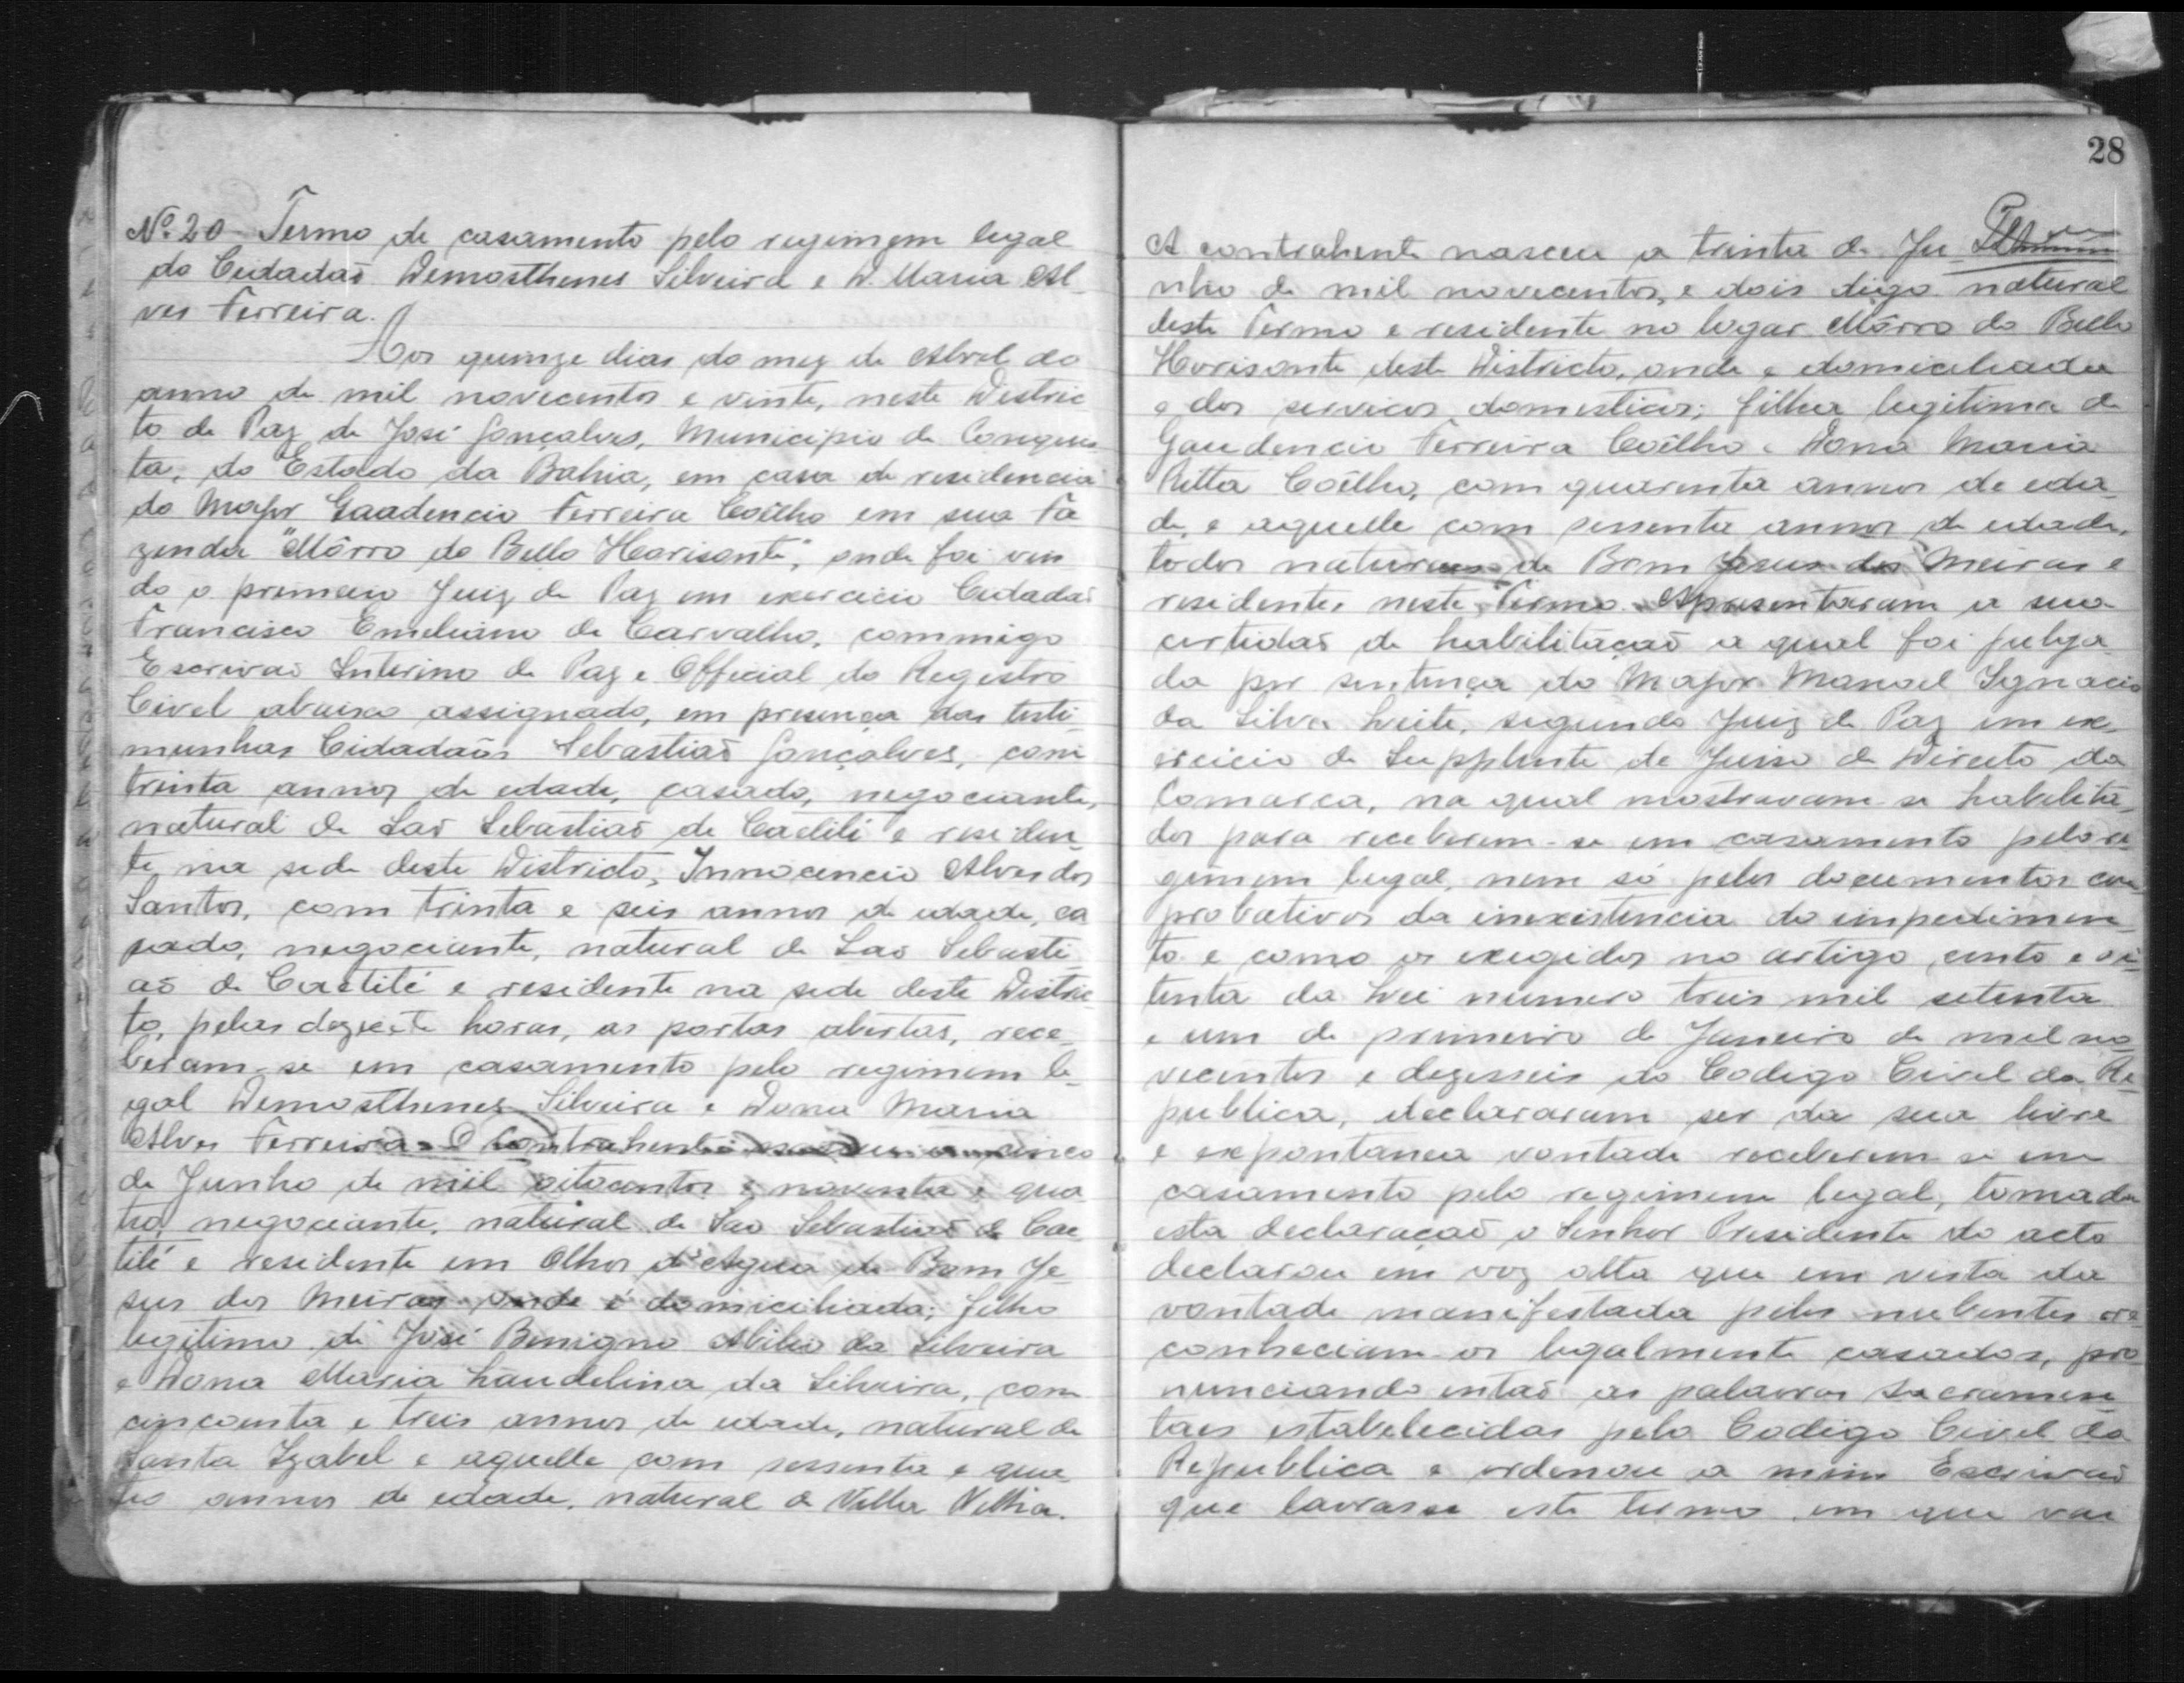 Nº 20 - Termo de casamento pelo regimem legal
do Cidadaõ Demosthenes Silveira e D. Maria Al-
ves Ferreira.
Aos quinze dias do mez de Abril do
anno de mil novecentos e vinte, neste Distric
to de Paz de José Gonçalves, Municipio de Conquis
ta, do Estado da Bahia, em casa de residencia
do Major Gaudencio Ferreira Coêlho em sua Fa
zenda "Môrro do Bello Horisonte", onde foi vin
do o primeiro Juiz de Paz em exercicio Cidadaõ
Francisco Emeliano de Carvalho, commigo
Escrivaõ Interino de Paz e Official do Registro
Civel abaixo assignado, em presença das teste
munhas Cidadaõs Sebastiaõ Gonçalves, com
trinta annos de edade, casado, negociante,
natural de Saõ Sebastiaõ de Caetité e residen
te na sede deste Districto, Innocencio Alves dos
Santos, com trinta e seis annos de edade, ca
sado, negociante, natural de Sao Sebasti
aõ de Caetité e residente na sede deste Distric
to, pelas dezesete horas, as portas abertas, rece-
beram-se em casamento pelo regimem le-
gal Demosthenes Silveira e Dona Maria
Alves Ferreira. O Contrahente nasceu a cinco
de Junho de mil oitocentos e noventa e qua
tro, negociante, natural de Sao Sebastiaõ de Cae
tité e residente em Olhos d'Agua de Bom Je-
sus dos Meiras onde é domiciliado; filho
legitimo de José Benigno Abilio da Silveira
e Dona Maria Laudelina da Silveira, com
cincoenta e treis annos de edade, natural de
Santa Izabel e aquelle com sessenta e qua
tro annos de edade, natural de Villa Velha.
28
A contrahente nasceu a trinta de Ju-
nho de mil novecentos, e dois digo natural
deste Termo e residente no logar Môrro do Bello
Horisonte deste Districto, onde e domiciliada
e dos servicos domesticos; filha legitima de
Gaudencio Ferreira Coêlho e Dona Maria
Ritta Coêlho, com quarenta annos de eda
de, e aquelle com sessenta annos de edade,
todos naturaes de Bom Jesus dos Meiras e
residentes neste Termo. Apresentaram a sua
certidaõ de habilitaçaõ a qual foi julga
da por sentença do Major Manoel Ignacio
da Silva Leite, segundo Juiz de Paz em ex-
ercicio de Supplente de Juiso de Direito da
Comarca, na qual mostravam-se habilita
dos para receberem-se em casamento pelo re-
gimem legal, nem só pelos documentos com
probativos da inexistencia do impedimen-
to e como os exegidos no artigo cento e oi-
tenta da Lei numero treis mil setenta
e um de primeiro de Janeiro de mil no-
vecentos e dezesseis do Codigo Civel da Re-
publica, declararam ser da sua livre
e expontanea vontade receberem se em
casamento pelo regimem legal, tomada
esta declaraçaõ o Senhor Presidente do acto
declarou em voz alta que em vista da
vontade manifestada pelos nubentes re-
conheciam-os legalmente casados, pro
nunciando entaõ as palavras sacramen
taes estabelecidas pelo Codigo Civel da
Republica e ordenou a mim Escrivaõ
que lavrasse este termo em que vai